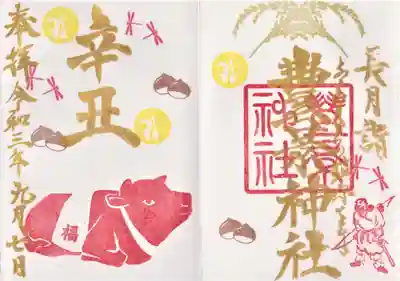 長月詣
豊景神社
辛丑
福
奉拝 令和三年九月七日